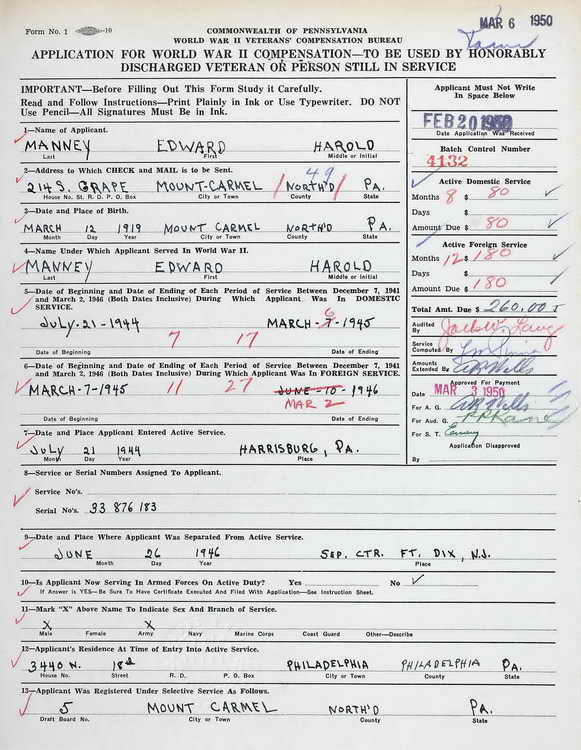 Form No. 1 10
COMMONWEALTH OF PENNSYLVANIA
WORLD WAR II VETERANS' COMPENSATION BUREAU
MAR 6 1950
APPLICATION FOR WORLD WAR II COMPENSATION—TO BE USED BY HONORABLY
DISCHARGED VETERAN OR PERSON STILL IN SERVICE
IMPORTANT—Before Filling Out This Form Study it Carefully.
Read and Follow Instructions—Print Plainly in Ink or Use Typewriter. DO NOT
Use Pencil—All Signatures Must Be in Ink.
Applicant Must Not Write
In Space Below
FEB 20 1950
Date Application Was Received
Batch Control Number
4132
1—Name of Applicant.
MANNEY EDWARD HAROLD
Last First Middle or Initial
2—Address to Which CHECK and MAIL is to be Sent.
49
214 S. GRAPE MOUNT-CARMEL / NORTH'D / PA.
House No. St. R. D. P. O. Box City or Town County State
3—Date and Place of Birth.
MARCH 12 1919 MOUNT CARMEL NORTH'D PA.
Month Day Year City or Town County State
4—Name Under Which Applicant Served In World War II.
MANNEY EDWARD HAROLD
Last First Middle or Initial
5—Date of Beginning and Date of Ending of Each Period of Service Between December 7, 1941
and March 2, 1946 (Both Dates Inclusive) During Which Applicant Was In DOMESTIC
SERVICE.
6
July-21-1944 MARCH-7-1945
7 17
Date of Beginning Date of Ending
6—Date of Beginning and Date of Ending of Each Period of Service Between December 7, 1941
and March 2, 1946 (Both Dates Inclusive) During Which Applicant Was In FOREIGN SERVICE.
MARCH-7-1945 11 27 JUNE-10-1946
MAR 2
Date of Beginning Date of Ending
7—Date and Place Applicant Entered Active Service.
July 21 1944 HARRISBURG, PA.
Month Day Year Place
Active Domestic Service
Months 8 $ 80
Days $
Amount Due $ 80
Active Foreign Service
Months 12 $ 180
Days $
Amount Due $ 180
Total Amt. Due $ 260.00
Audited By
Service Computed By
Amounts Extended By
Approved For Payment
Date MAR 3 1950
For A. G.
For Aud. G.
For S. T.
Application Disapproved
By
8—Service or Serial Numbers Assigned To Applicant.
Service No's.
Serial No's. 33 876 183
9—Date and Place Where Applicant Was Separated From Active Service.
JUNE 26 1946 SEP. CTR. FT. DIX, N.J.
Month Day Year Place
10—Is Applicant Now Serving In Armed Forces On Active Duty? Yes No ✓
If Answer is YES—Be Sure To Have Certificate Executed And Filed With Application—See Instruction Sheet.
11—Mark "X" Above Name To Indicate Sex And Branch of Service.
X X
Male Female Army Navy Marine Corps Coast Guard Other—Describe
12—Applicant's Residence At Time of Entry Into Active Service.
3440 N. 18th PHILADELPHIA PHILADELPHIA PA.
House No. Street R. D. P. O. Box City or Town County State
13—Applicant Was Registered Under Selective Service As Follows.
5 MOUNT CARMEL NORTH'D PA.
Draft Board No. City or Town County State